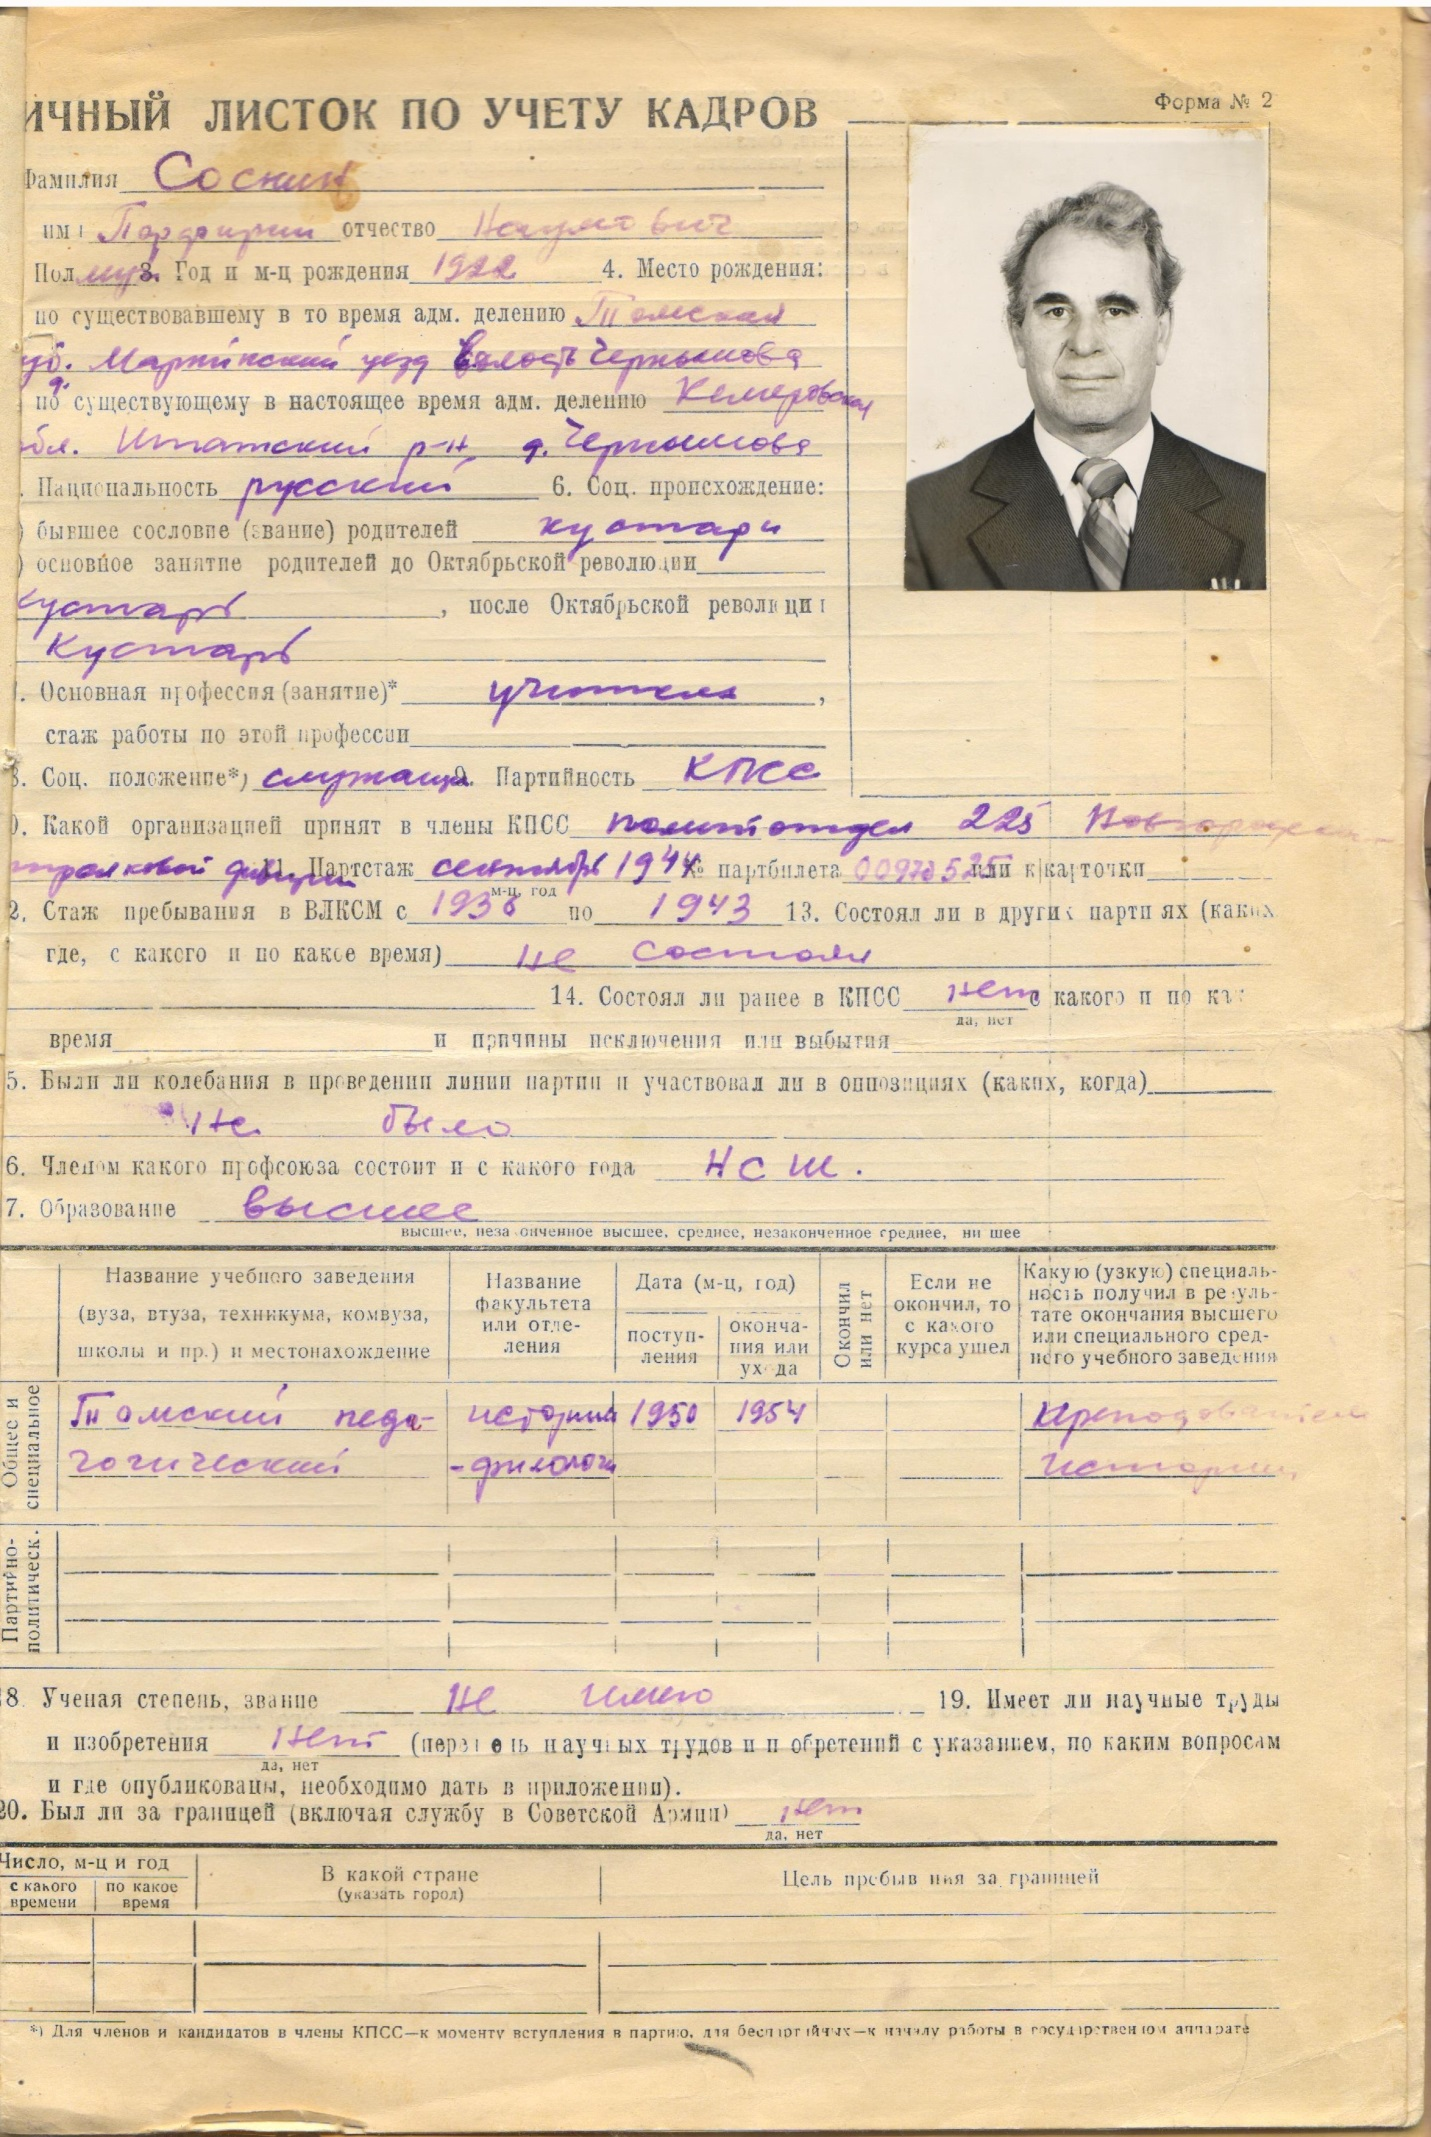 ИЧНЫЙ ЛИСТОК ПО УЧЕТУ КАДРОВ
Форма № 2
Фамилия Соскин
имя Порфирий отчество Наумович
Пол муж. 3. Год и м-ц рождения 1922 4. Место рождения:
по существовавшему в то время адм. делению Томская
губ. Мариинский уезд Волость Чернышова
по существующему в настоящее время адм. делению Кемеровская
обл. Итатский р-н, д. Чернышова
. Национальность русский 6. Соц. происхождение:
) бывшее сословие (звание) родителей кустари
) основное занятие родителей до Октябрьской революции
кустарь, после Октябрьской революции
Кустарь
. Основная профессия (занятие)* учитель,
стаж работы по этой профессии
8. Соц. положение*) служащий 9. Партийность КПСС
0. Какой организацией принят в члены КПСС политотдел 225 Новгородской
стрелковой дивизии 11. Партстаж сентябрь 1944 № партбилета или к карточки
м-ц, год
2. Стаж пребывания в ВЛКСМ с 1938 по 1943 13. Состоял ли в других партиях (каких
где, с какого и по какое время) не состоял
14. Состоял ли ранее в КПСС нет с какого и по как
да, нет
время и причины исключения или выбытия
5. Были ли колебания в проведении линии партии и участвовал ли в оппозициях (каких, когда)
Не было
6. Членом какого профсоюза состоит и с какого года НСШ.
7. Образование высшее
высшее, незаконченное высшее, среднее, незаконченное среднее, низшее
Название учебного заведения (вуза, втуза, техникума, комвуза, школы и пр.) и местонахождение
Название факультета или отделения
Дата (м-ц, год)
поступ-
ления
оконча-
ния или
ухода
Окончил или нет
Если не
окончил, то
с какого
курса ушел
Какую (узкую) специаль-
ность получил в резуль-
тате окончания высшего
или специального сред-
него учебного заведения
Общее и специальное
Томский педа- истории 1950 1954 Преподаватель
гогический -филологи Истории
Партийно-политическ.
18. Ученая степень, звание Не имею 19. Имеет ли научные труды
и изобретения Нет (перечень научных трудов и изобретений с указанием, по каким вопросам
да, нет
и где опубликованы, необходимо дать в приложении).
20. Был ли за границей (включая службу в Советской Армии) нет
да, нет
Число, м-ц и год
с какого времени
по какое время
В какой стране
(указать город)
Цель пребывания за границей
*) Для членов и кандидатов в члены КПСС—к моменту вступления в партию, для беспартийных—к началу работы в государственном аппарате